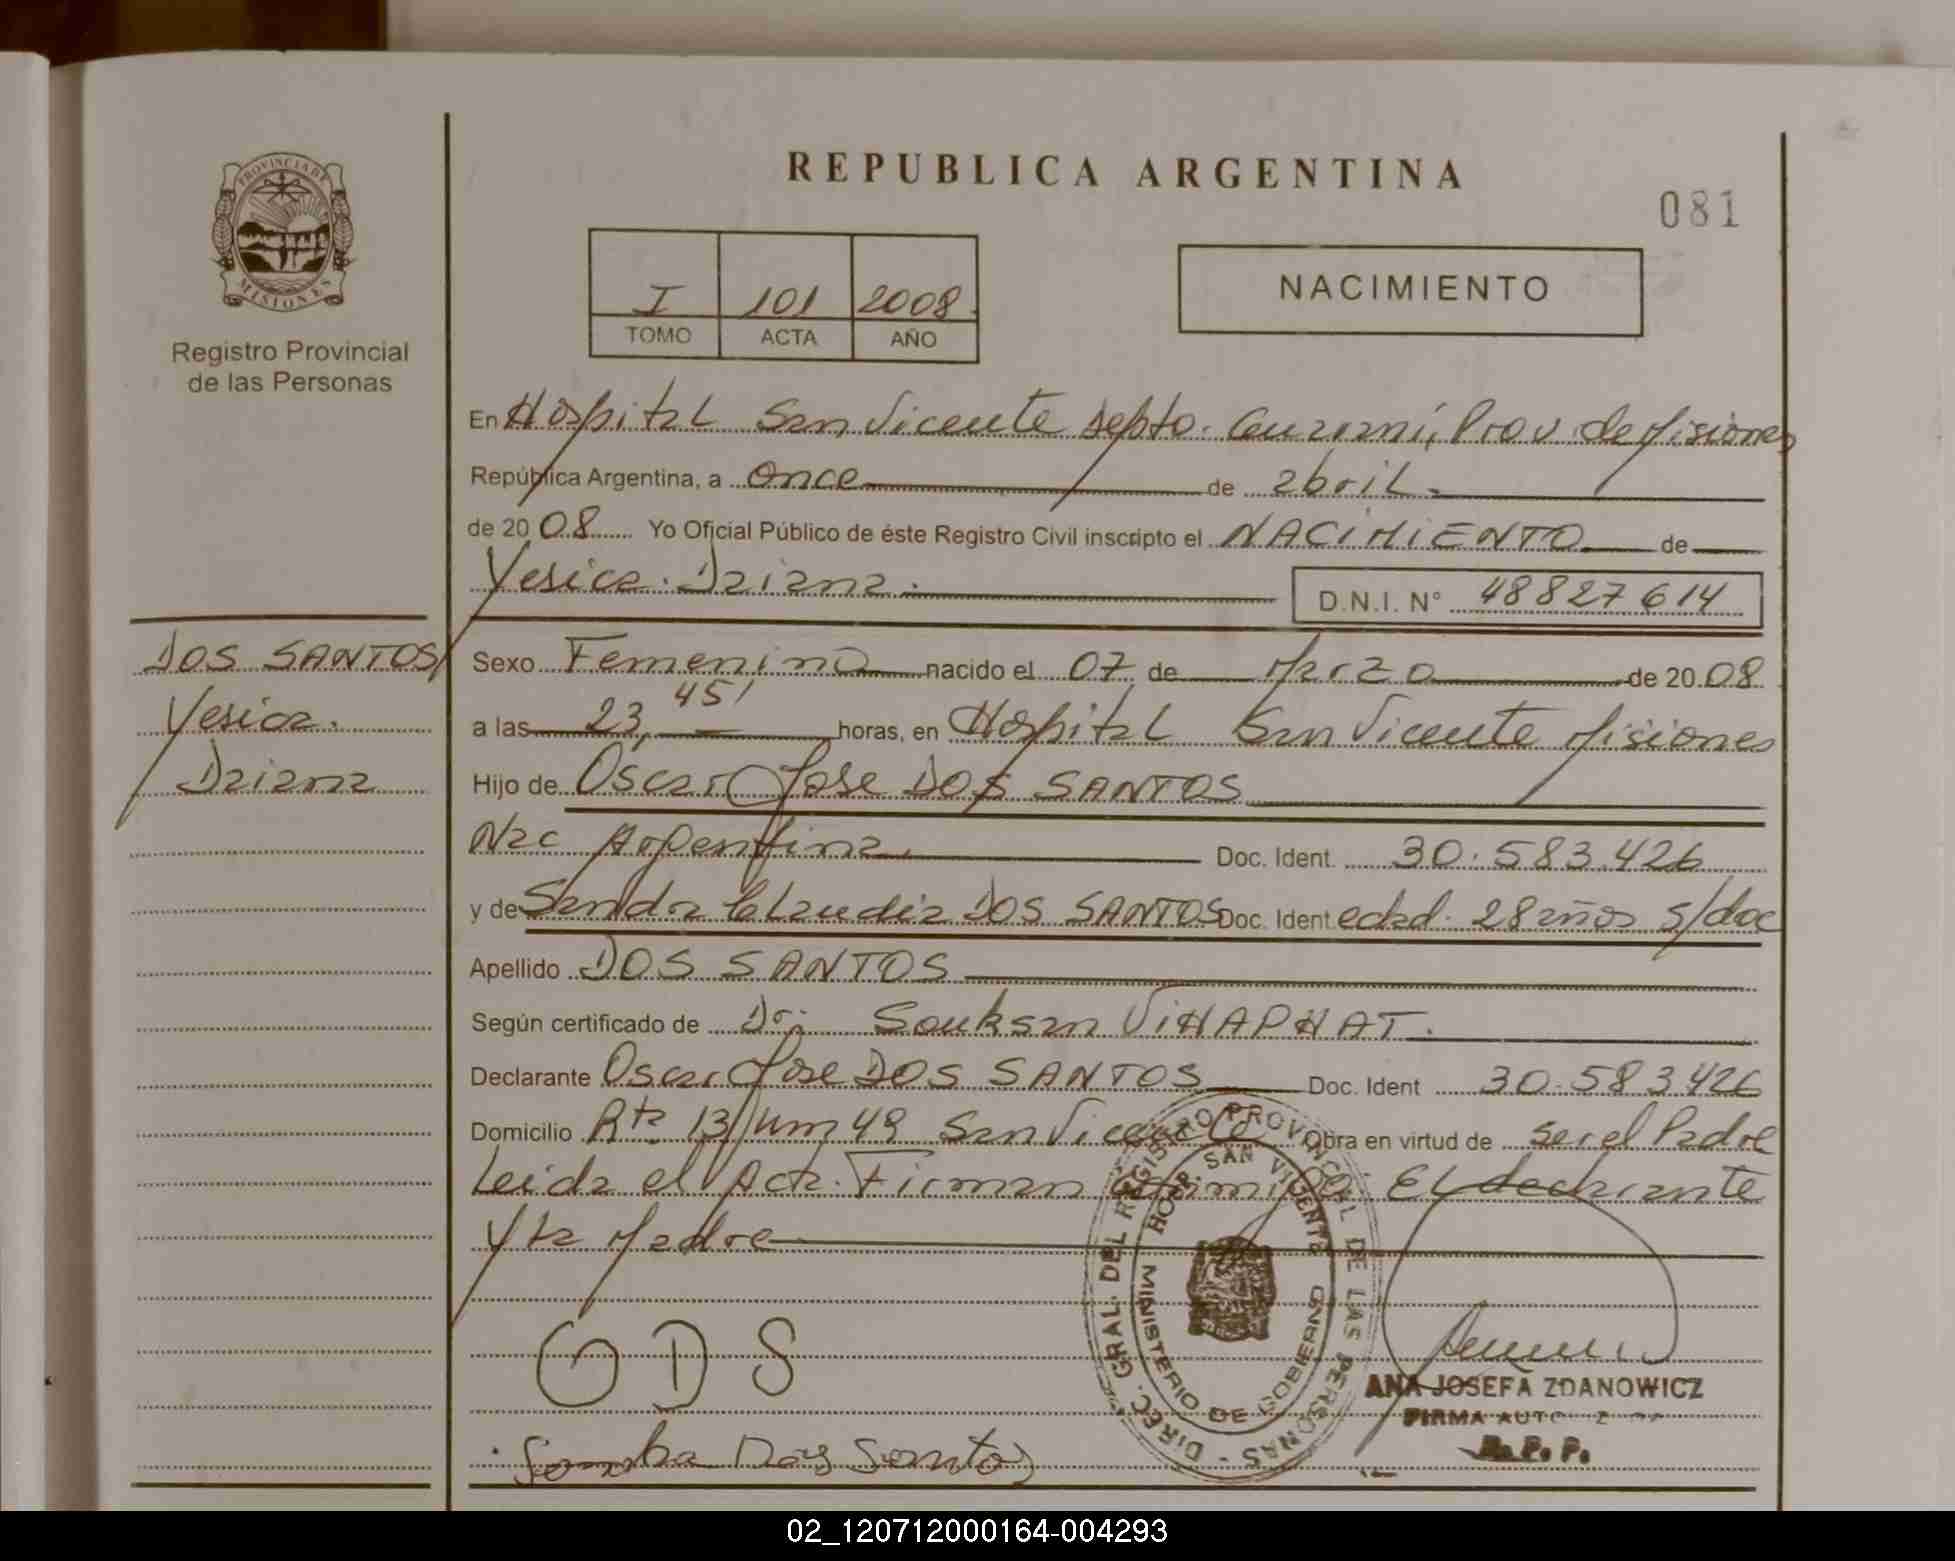 PROVINCIA DE
MISIONES
Registro Provincial
de las Personas
REPUBLICA ARGENTINA
081
I 101 2008
TOMO ACTA AÑO
NACIMIENTO
En Hospital San Vicente Depto. Guaraní, Prov. de Misiones
República Argentina, a once de abril.
de 2008 Yo Oficial Público de éste Registro Civil inscripto el NACIMIENTO de
Yesica Daiana. D.N.I. N° 48827614
DOS SANTOS
Yesica.
Daiana
Sexo Femenino nacido el 07 de Marzo de 2008
a las 23, 45' horas, en Hospital San Vicente Misiones
Hijo de Oscar Jose DOS SANTOS
Nac Argentina. Doc. Ident. 30.583.426
y de Sandra Claudia DOS SANTOS Doc. Ident edad. 28 años s/doc
Apellido DOS SANTOS
Según certificado de Dr. Souksan VIHAPHAT.
Declarante Oscar Jose DOS SANTOS Doc. Ident 30.583.426
Domicilio Rta 13 Km 49 San Vicente Obra en virtud de ser el Padre
Leida el Acta. Firman El declarante
y la Madre
O D S
Sandra Dos Santos
DIREC. GRAL. DEL REGISTRO PROVINCIAL DE LAS PERSONAS
HOSP SAN VICENTE
MINISTERIO DE GOBIERNO
ANA JOSEFA ZDANOWICZ
FIRMA
R. P. P.
02_120712000164-004293